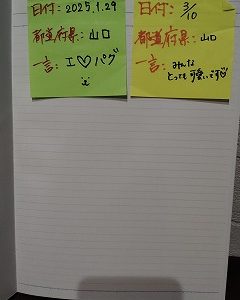 日付:2025.1.29
都道府県:山口
一言:I♡パグ
日付:3/10
都道府県:山口
一言:みんな
とっても可愛いです